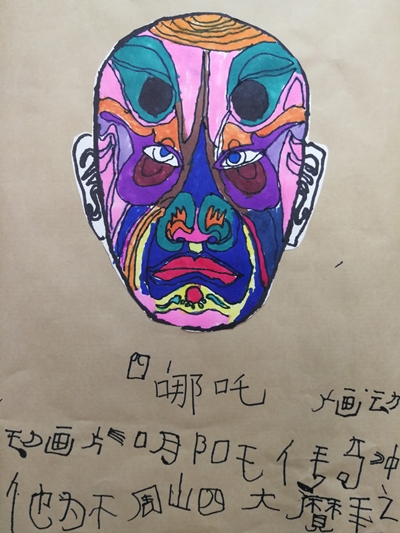 四哪吒 画动
动画片《哪吒传奇》
他为不周山四大魔